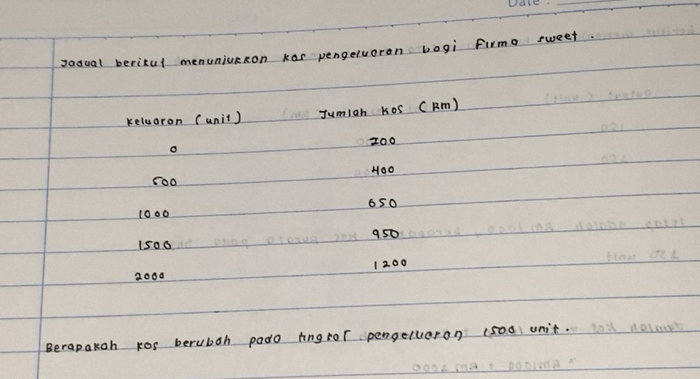 Date :
Jadual berikut menunjukkan kos pengeluaran bagi Firma sweet.
Keluaran (unit) Jumlah kos (RM)
0 200
500 400
1000 650
1500 950
2000 1200
Berapakah kos berubah pada tingkat pengeluaran 1500 unit.